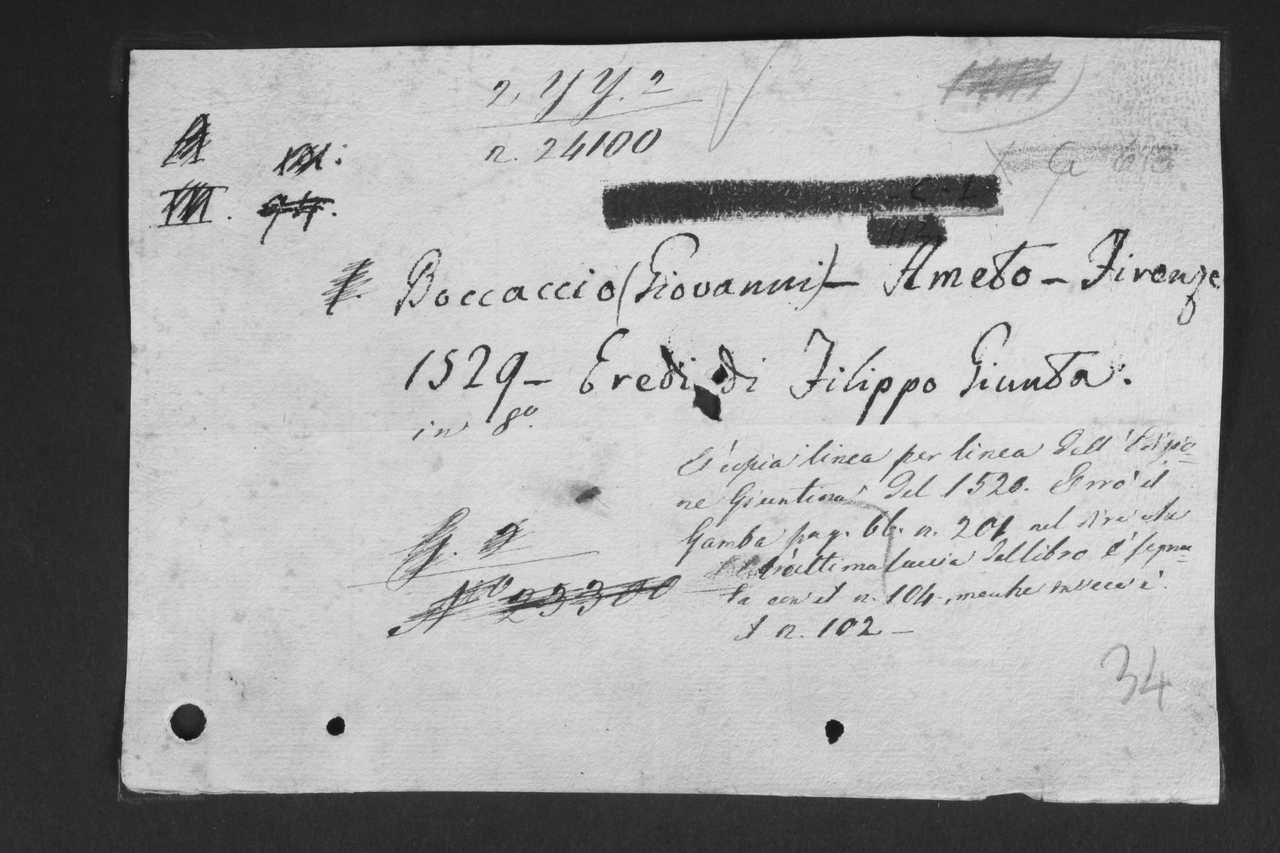 2. YY. 2
n. 24100
C. L
112
Boccaccio (Giovanni) – Ameto – Firenze
1529 – Eredi di Filippo Giunta.
in 8.º
È copia linea per linea dell'Edizio=
ne Giuntina del 1520. Errò il
Gamba pag. 66. n. 201 nel dire che
ultima faccia del libro è segna=
ta con il n. 104, mentre invece è
il n. 102 –
G. 2
Nº 23300
34